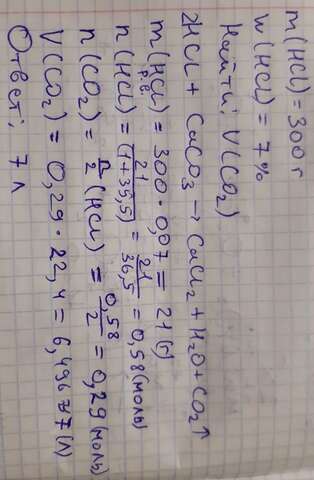 m(HCl) = 300 г
w(HCl) = 7%
Найти: V(CO₂)
2HCl + CaCO₃ → CaCl₂ + H₂O + CO₂↑
m(HCl) р.в. = 300 · 0,07 = 21 (г)
n(HCl) = 21/(1+35,5) = 21/36,5 = 0,58 (моль)
n(CO₂) = n/2 (HCl) = 0,58/2 = 0,29 (моль)
V(CO₂) = 0,29 · 22,4 = 6,496 ≈ 7 (л)
Ответ: 7 л